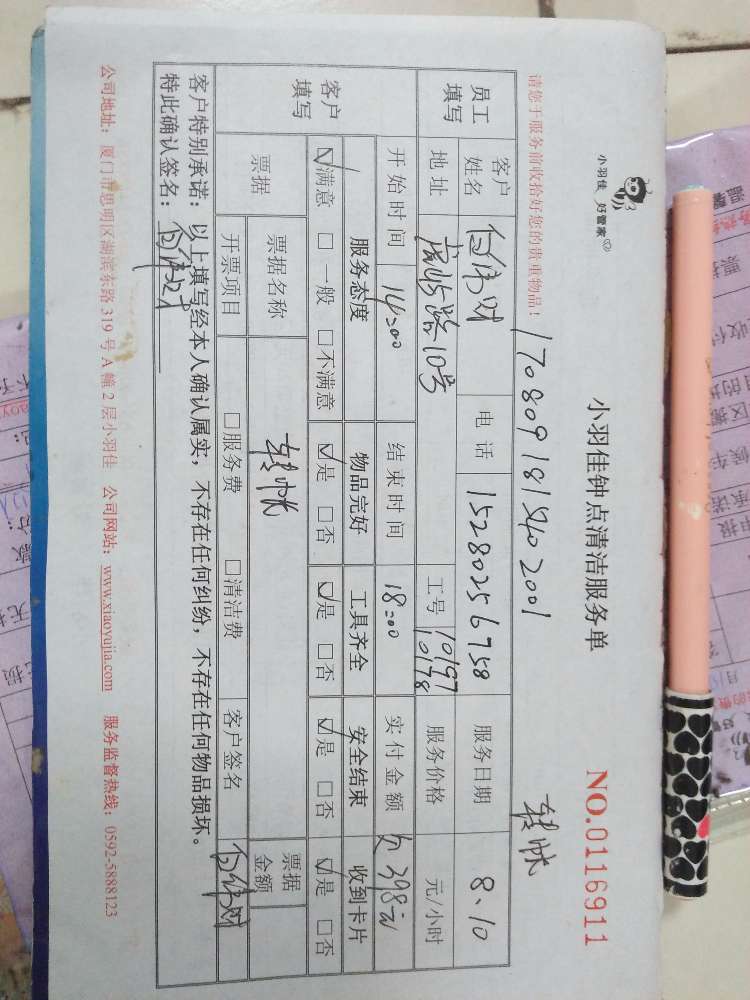 小羽佳 好管家
小羽佳钟点清洁服务单
NO.0116911
请您于服务前收拾好您的贵重物品!
1708091815402001
转帐
员工填写
客户姓名
电话 15280256758
服务日期 8.10
地址 10号
工号 10197 10178
服务价格 元/小时
客户填写
开始时间 14:00
结束时间 18:00
实付金额 欠398元
服务态度 物品完好 工具齐全 安全结束 收到卡片
☑满意 □一般 □不满意 ☑是 □否 ☑是 □否 ☑是 □否 ☑是 □否
票据
票据名称 转帐
票据金额
开票项目 □服务费 □清洁费 客户签名
客户特别承诺:以上填写经本人确认属实,不存在任何纠纷,不存在任何物品损坏。
特此确认签名:
公司地址:厦门市思明区湖滨东路319号A幢2层小羽佳 公司网站:www.xiaoyujia.com 服务监督热线:0592-5888123